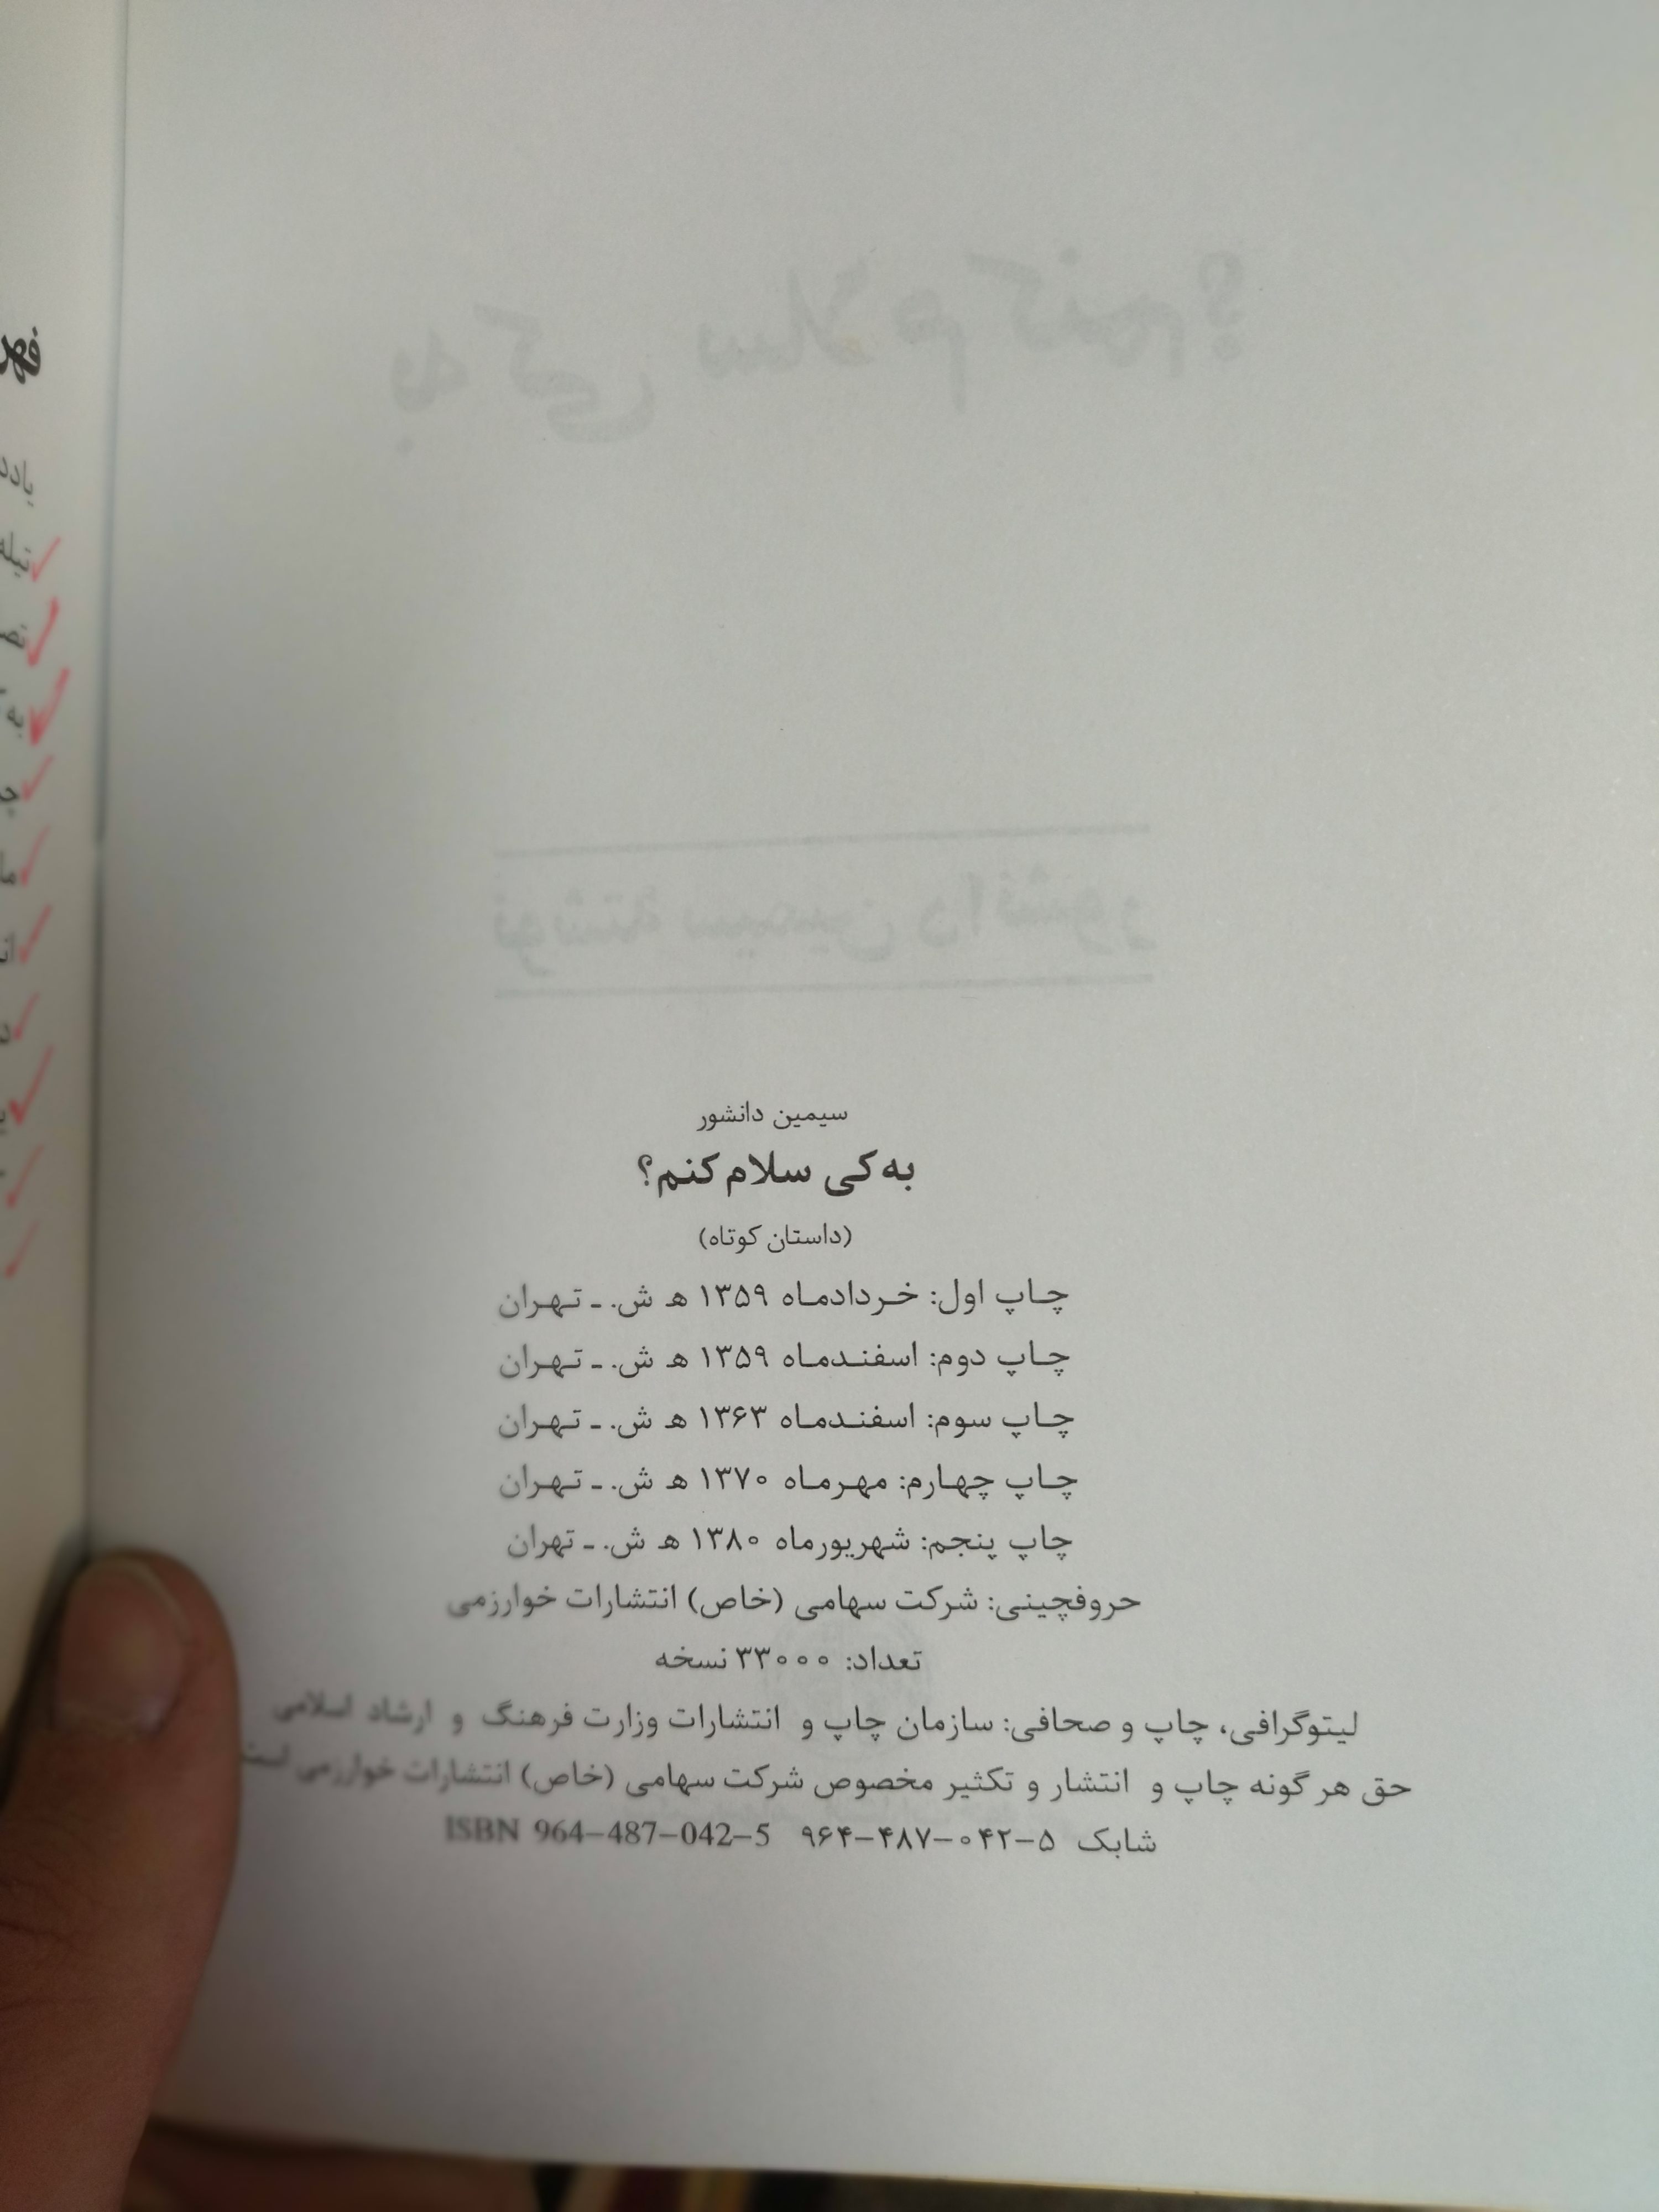 سیمین دانشور
به کی سلام کنم؟
(داستان کوتاه)
چاپ اول: خردادماه ۱۳۵۹ ه‍ ش. ـ تهران
چاپ دوم: اسفندماه ۱۳۵۹ ه‍ ش. ـ تهران
چاپ سوم: اسفندماه ۱۳۶۳ ه‍ ش. ـ تهران
چاپ چهارم: مهرماه ۱۳۷۰ ه‍ ش. ـ تهران
چاپ پنجم: شهریورماه ۱۳۸۰ ه‍ ش. ـ تهران
حروفچینی: شرکت سهامی (خاص) انتشارات خوارزمی
تعداد: ۳۳۰۰۰ نسخه
لیتوگرافی، چاپ و صحافی: سازمان چاپ و انتشارات وزارت فرهنگ و ارشاد اسلامی
حق هر گونه چاپ و انتشار و تکثیر مخصوص شرکت سهامی (خاص) انتشارات خوارزمی است
شابک ۵–۰۴۲–۴۸۷–۹۶۴ ISBN 964–487–042–5